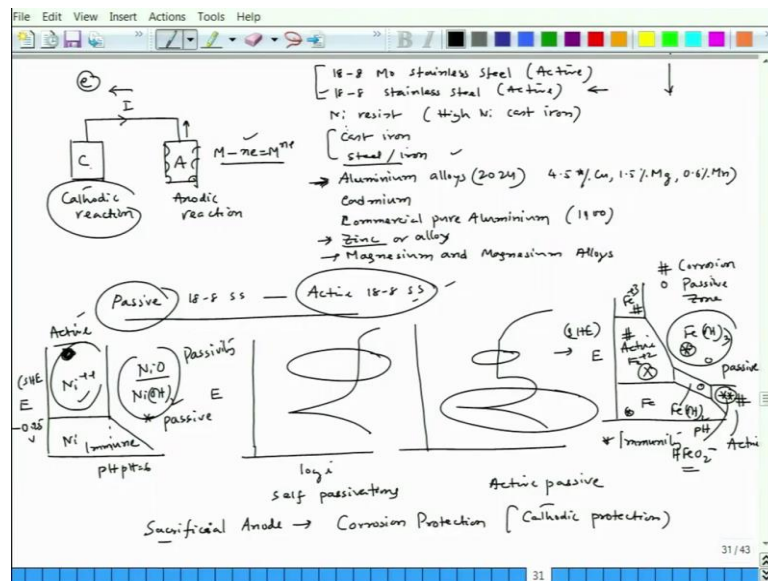 File Edit View Insert Actions Tools Help
e
I
C
A
M - ne = M^ne
Cathodic reaction
Anodic reaction
18-8 Mo stainless steel (Active)
18-8 stainless steel (Active) ←
Ni resist (High Ni cast iron)
Cast iron
Steel/iron ✓
→ Aluminium alloys (2024) 4.5% Cu, 1.5% Mg, 0.6% Mn)
Cadmium
Commercial pure Aluminium (1100)
→ Zinc or alloy
→ Magnesium and Magnesium Alloys
Passive 18-8 SS — Active 18-8 SS
# Corrosion
o Passive Zone
Active
(SHE
E
Ni++
NiO
Ni(OH)2
Passivity
* passive
Ni
Immune
pH pH=6
E
log i
Self passivating
Active passive
→ E
(SHE)
Fe+3
#
# Active
Fe+2
Fe(OH)3
passive
Fe
Fe(OH)2
**
#
pH
* Immunity
HFeO2-
Sacrificial Anode → Corrosion Protection [Cathodic protection)
31 / 43
31